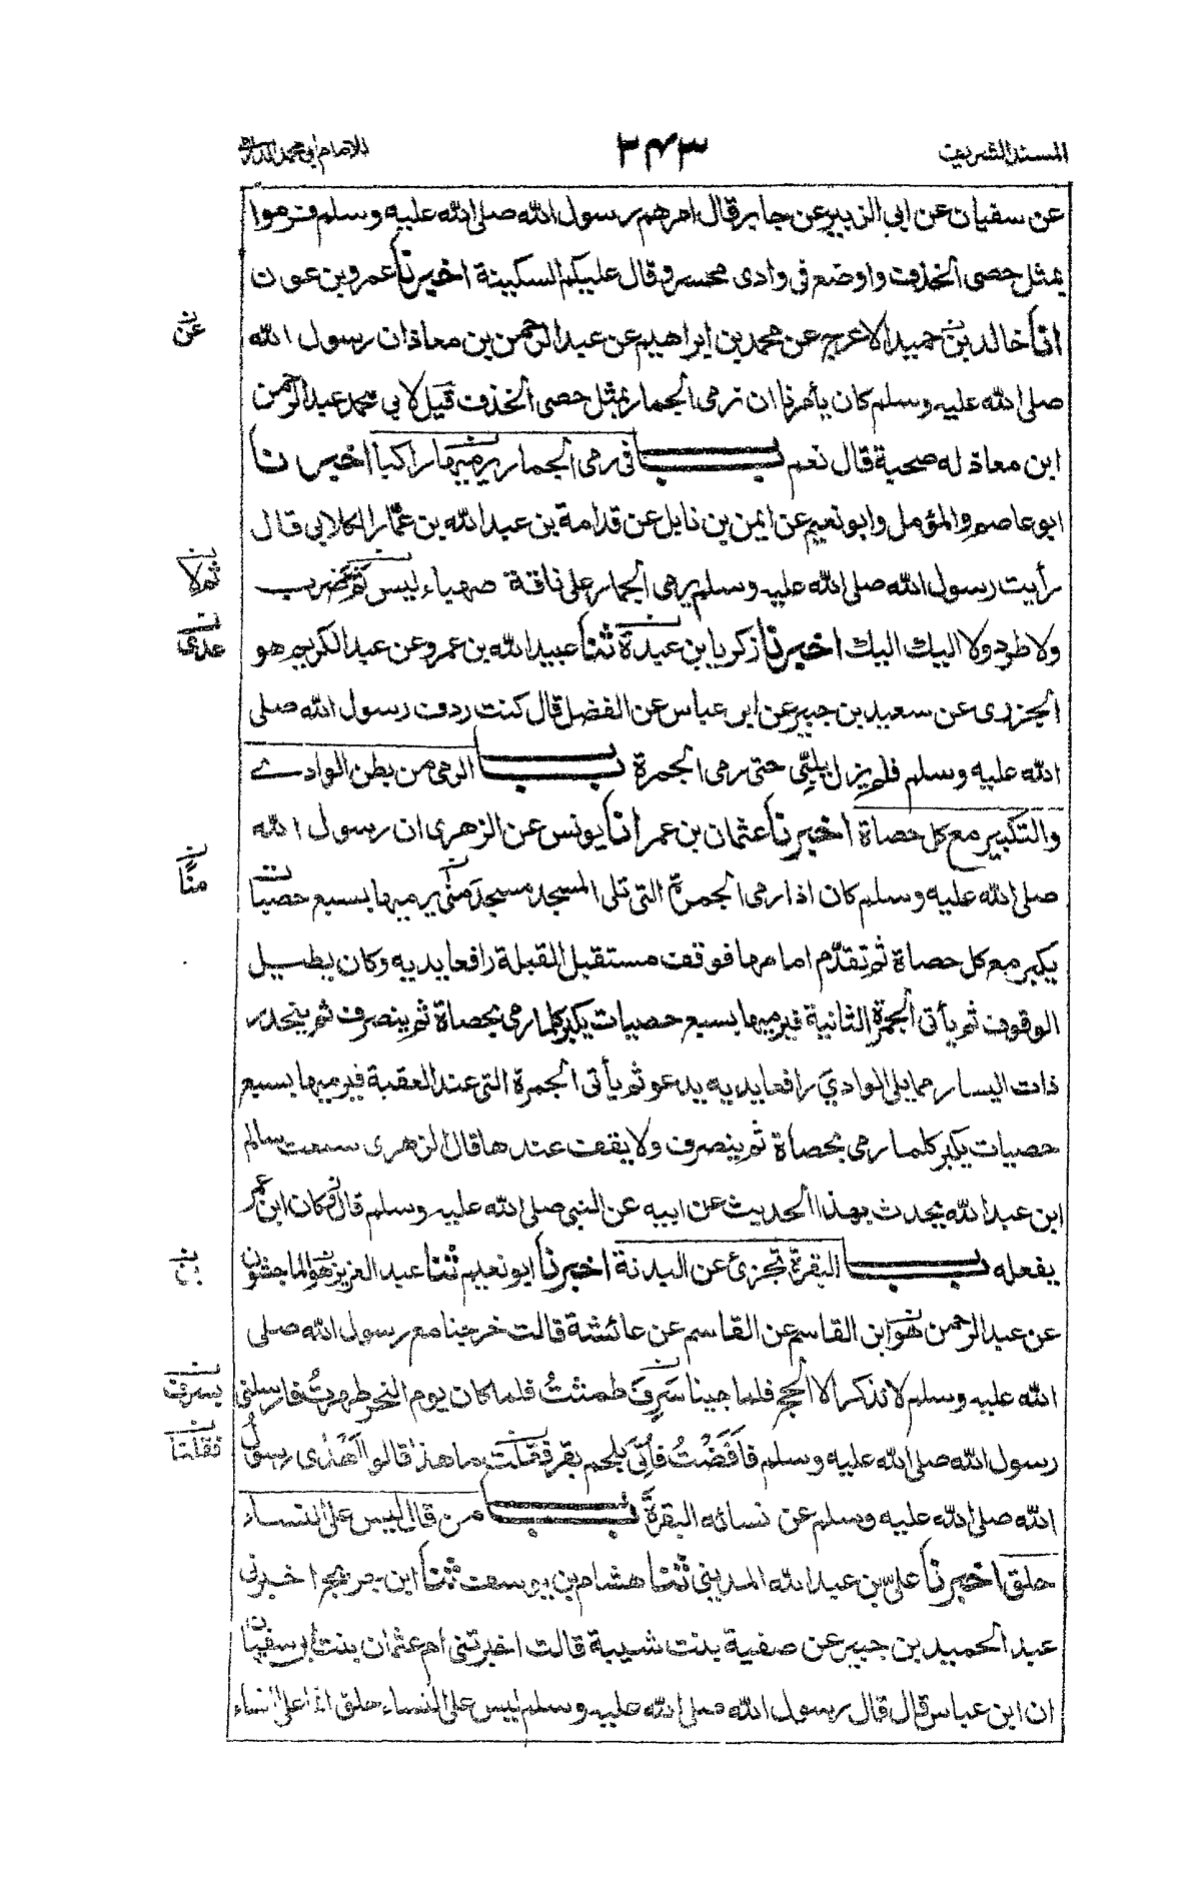 المسند الشريف
٢٤٣
للامام ابي محمد الدارمي
عن سفيان عن ابي الزبير عن جابر قال امرهم رسول الله صلى الله عليه وسلم فرموا
بمثل حصى الخذف واوضع في وادى محسر وقال عليكم السكينة اخبرنا عمرو بن عون
انا خالد بن حميد الاعرج عن محمد بن ابراهيم عن عبد الرحمن بن معاذ ان رسول الله
عن
صلى الله عليه وسلم كان يأمرنا ان نرمى الجمار بمثل حصى الخذف قيل لابي محمد عبد الرحمن
ابن معاذ له صحبة قال نعم باب فى رمى الجمار يرميها راكبا اخبرنا
ابو عاصم والمؤمل وابو نعيم عن ايمن بن نابل عن قدامة بن عبد الله بن عمار الكلابي قال
رأيت رسول الله صلى الله عليه وسلم يرمى الجمار على ناقة صهباء ليس ثم ضرب
ثم لا
ولا طرد ولا اليك اليك اخبرنا زكريا بن عبدة ثنا عبيد الله بن عمرو عن عبد الكريم هو
عدى
الجزرى عن سعيد بن جبير عن ابن عباس عن الفضل قال كنت ردف رسول الله صلى
الله عليه وسلم فلم يزل يلبّى حتى رمى الجمرة باب الرمى من بطن الوادے
والتكبير مع كل حصاة اخبرنا عثمان بن عمر انا يونس عن الزهرى ان رسول الله
صلى الله عليه وسلم كان اذا رمى الجمرة التى تلى المسجد مسجد منى يرميها بسبع حصيات
منًا
يكبر مع كل حصاة ثم تقدّم امامها فوقف مستقبل القبلة رافعا يديه وكان يطيل
الوقوف ثم يأتى الجمرة الثانية فيرميها بسبع حصيات يكبر كلما رمى بحصاة ثم ينصرف ثم ينحدر
ذات اليسار مما يلى الوادي رافعا يديه يدعو ثم يأتى الجمرة التى عند العقبة فيرميها بسبع
حصيات يكبر كلما رمى بحصاة ثم ينصرف ولا يقف عندها قال الزهرى سمعت سالم
ابن عبد الله يحدث بهذا الحديث عن ابيه عن النبى صلى الله عليه وسلم قال وكان ابن عمر
يفعله باب البقرة تجزئ عن البدنة اخبرنا ابو نعيم ثنا عبد العزيز هو الماجشون
بن
عن عبد الرحمن هو ابن القاسم عن القاسم عن عائشة قالت خرجنا مع رسول الله صلى
الله عليه وسلم لا نذكر الا الحج فلما جينا سَرِفَ طمثتُ فلما كان يوم النحر طهرتُ فارسلنى
بسرف
رسول الله صلى الله عليه وسلم فاَفَضْتُ فأُتِىَ بلحم بقر فقلت ما هذا قالوا اَهْدٰى رسول
فقلنا
الله صلى الله عليه وسلم عن نسائه البقرةَ باب من قال ليس على النساء
حلق اخبرنا علىّ بن عبد الله المدينى ثنا هشام بن يوسف ثنا ابن جريج اخبرنى
عبد الحميد بن جبير عن صفية بنت شيبة قالت اخبرتنى ام عثمان بنت ابى سفيان
ان ابن عباس قال قال رسول الله صلى الله عليه وسلم ليس على النساء حلق انما على النساء